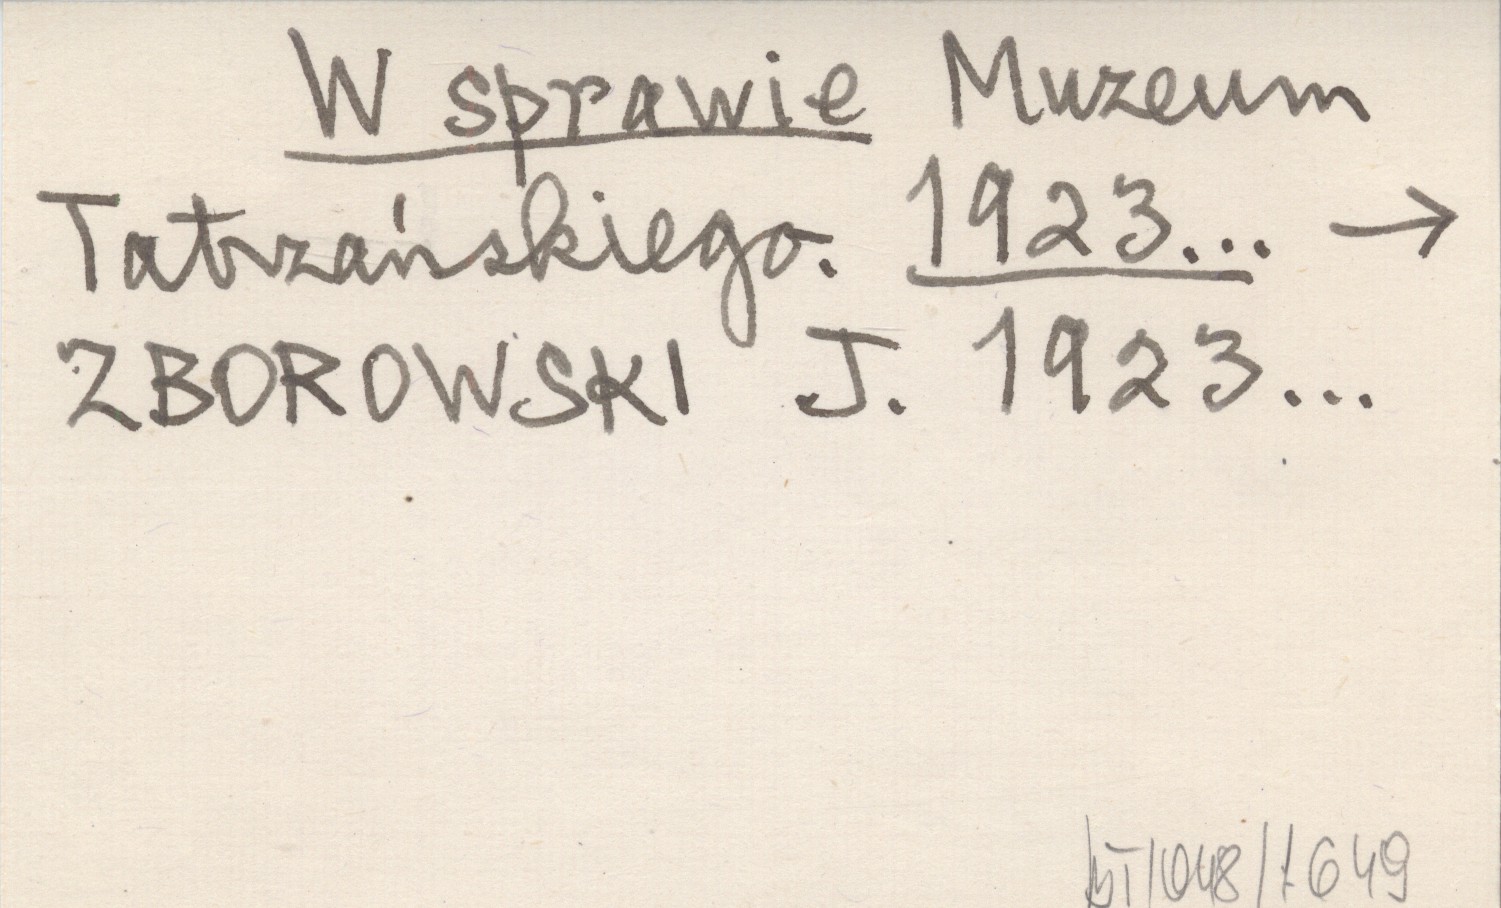 W sprawie Muzeum
Tatrzańskiego. 1923... →
ZBOROWSKI J. 1923...
/1649